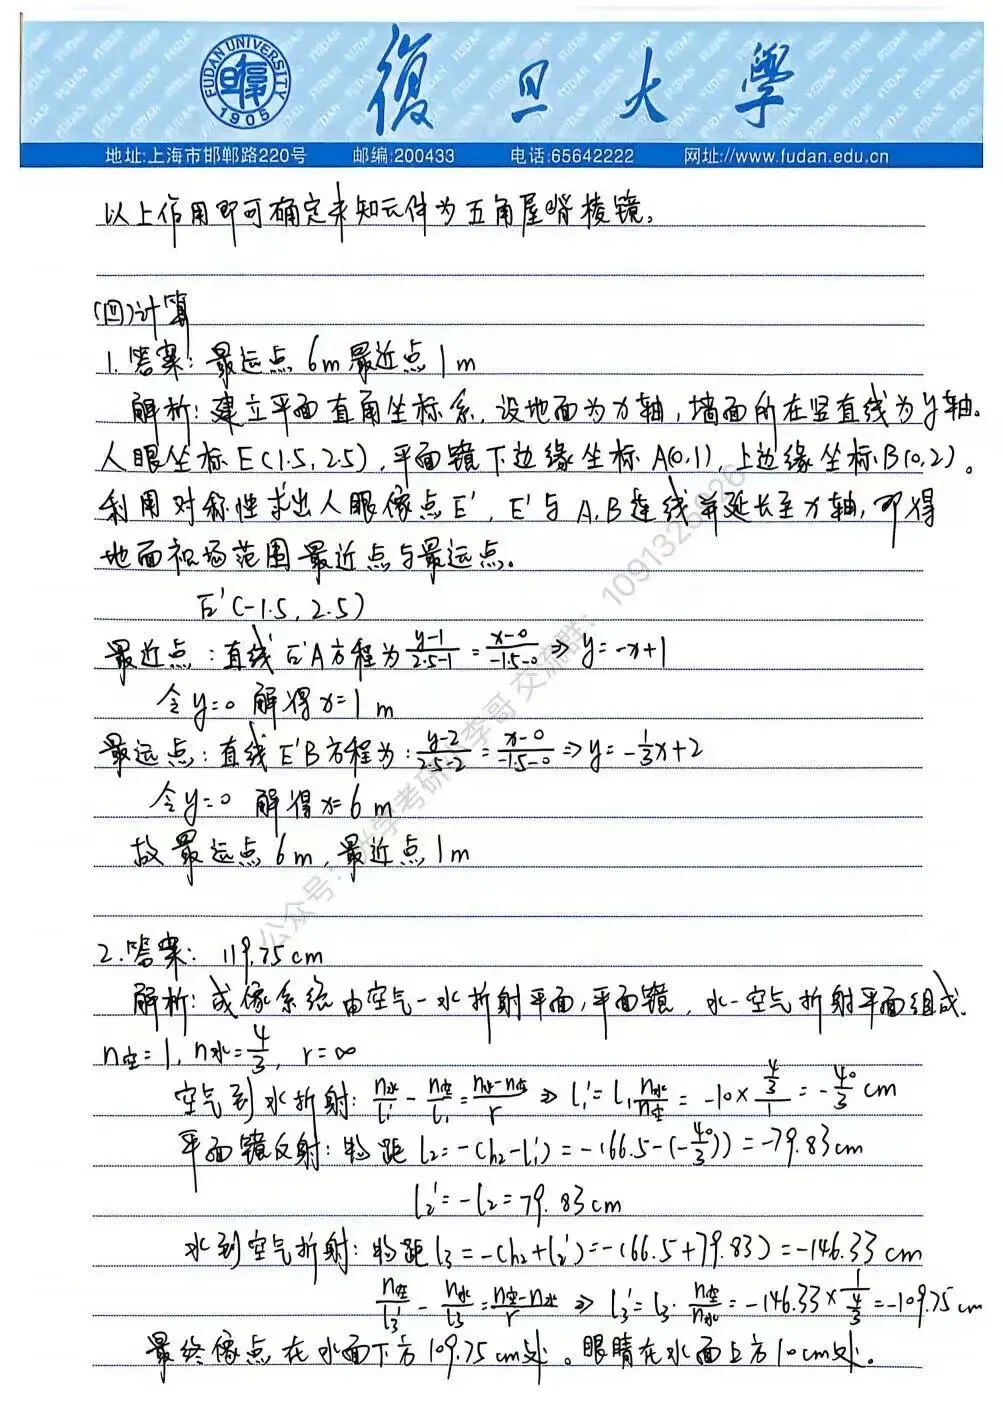 FUDAN UNIVERSITY
1905
復旦大學
地址:上海市邯郸路220号 邮编:200433 电话:65642222 网址://www.fudan.edu.cn
以上作用即可确定未知元件为五角屋脊棱镜。
(四)计算
1.答案:最远点6m最近点1m
解析:建立平面直角坐标系,设地面为x轴,墙面所在竖直线为y轴。
人眼坐标E(1.5,2.5),平面镜下边缘坐标A(0,1),上边缘坐标B(0,2)。
利用对称性求出人眼像点E',E'与A,B连线并延长至x轴,即得
地面视场范围最近点与最远点。
E'(-1.5,2.5)
最近点:直线E'A方程为(y-1)/(2.5-1)=(x-0)/(-1.5-0)⇒y=-x+1
令y=0 解得x=1m
最远点:直线E'B方程为:(y-2)/(2.5-2)=(x-0)/(-1.5-0)⇒y=-1/3x+2
令y=0 解得x=6m
故最远点6m,最近点1m
2.答案:119.75cm
解析:成像系统由空气-水折射平面,平面镜,水-空气折射平面组成.
n空=1,n水=4/3,r=∞
空气到水折射:n水/l₁'-n空/l₁=(n水-n空)/r⇒l₁'=l₁n水/n空=-10×(4/3)/1=-40/3cm
平面镜反射:物距l₂=-(h₂-l₁')=-(66.5-(-40/3))=-79.83cm
l₂'=-l₂=79.83cm
水到空气折射:物距l₃=-(h₂+l₂')=-(66.5+79.83)=-146.33cm
n空/l₃'-n水/l₃=(n空-n水)/r⇒l₃'=l₃·n空/n水=-146.33×1/(4/3)=-109.75cm
最终像点在水面下方109.75cm处。眼睛在水面上方10cm处。